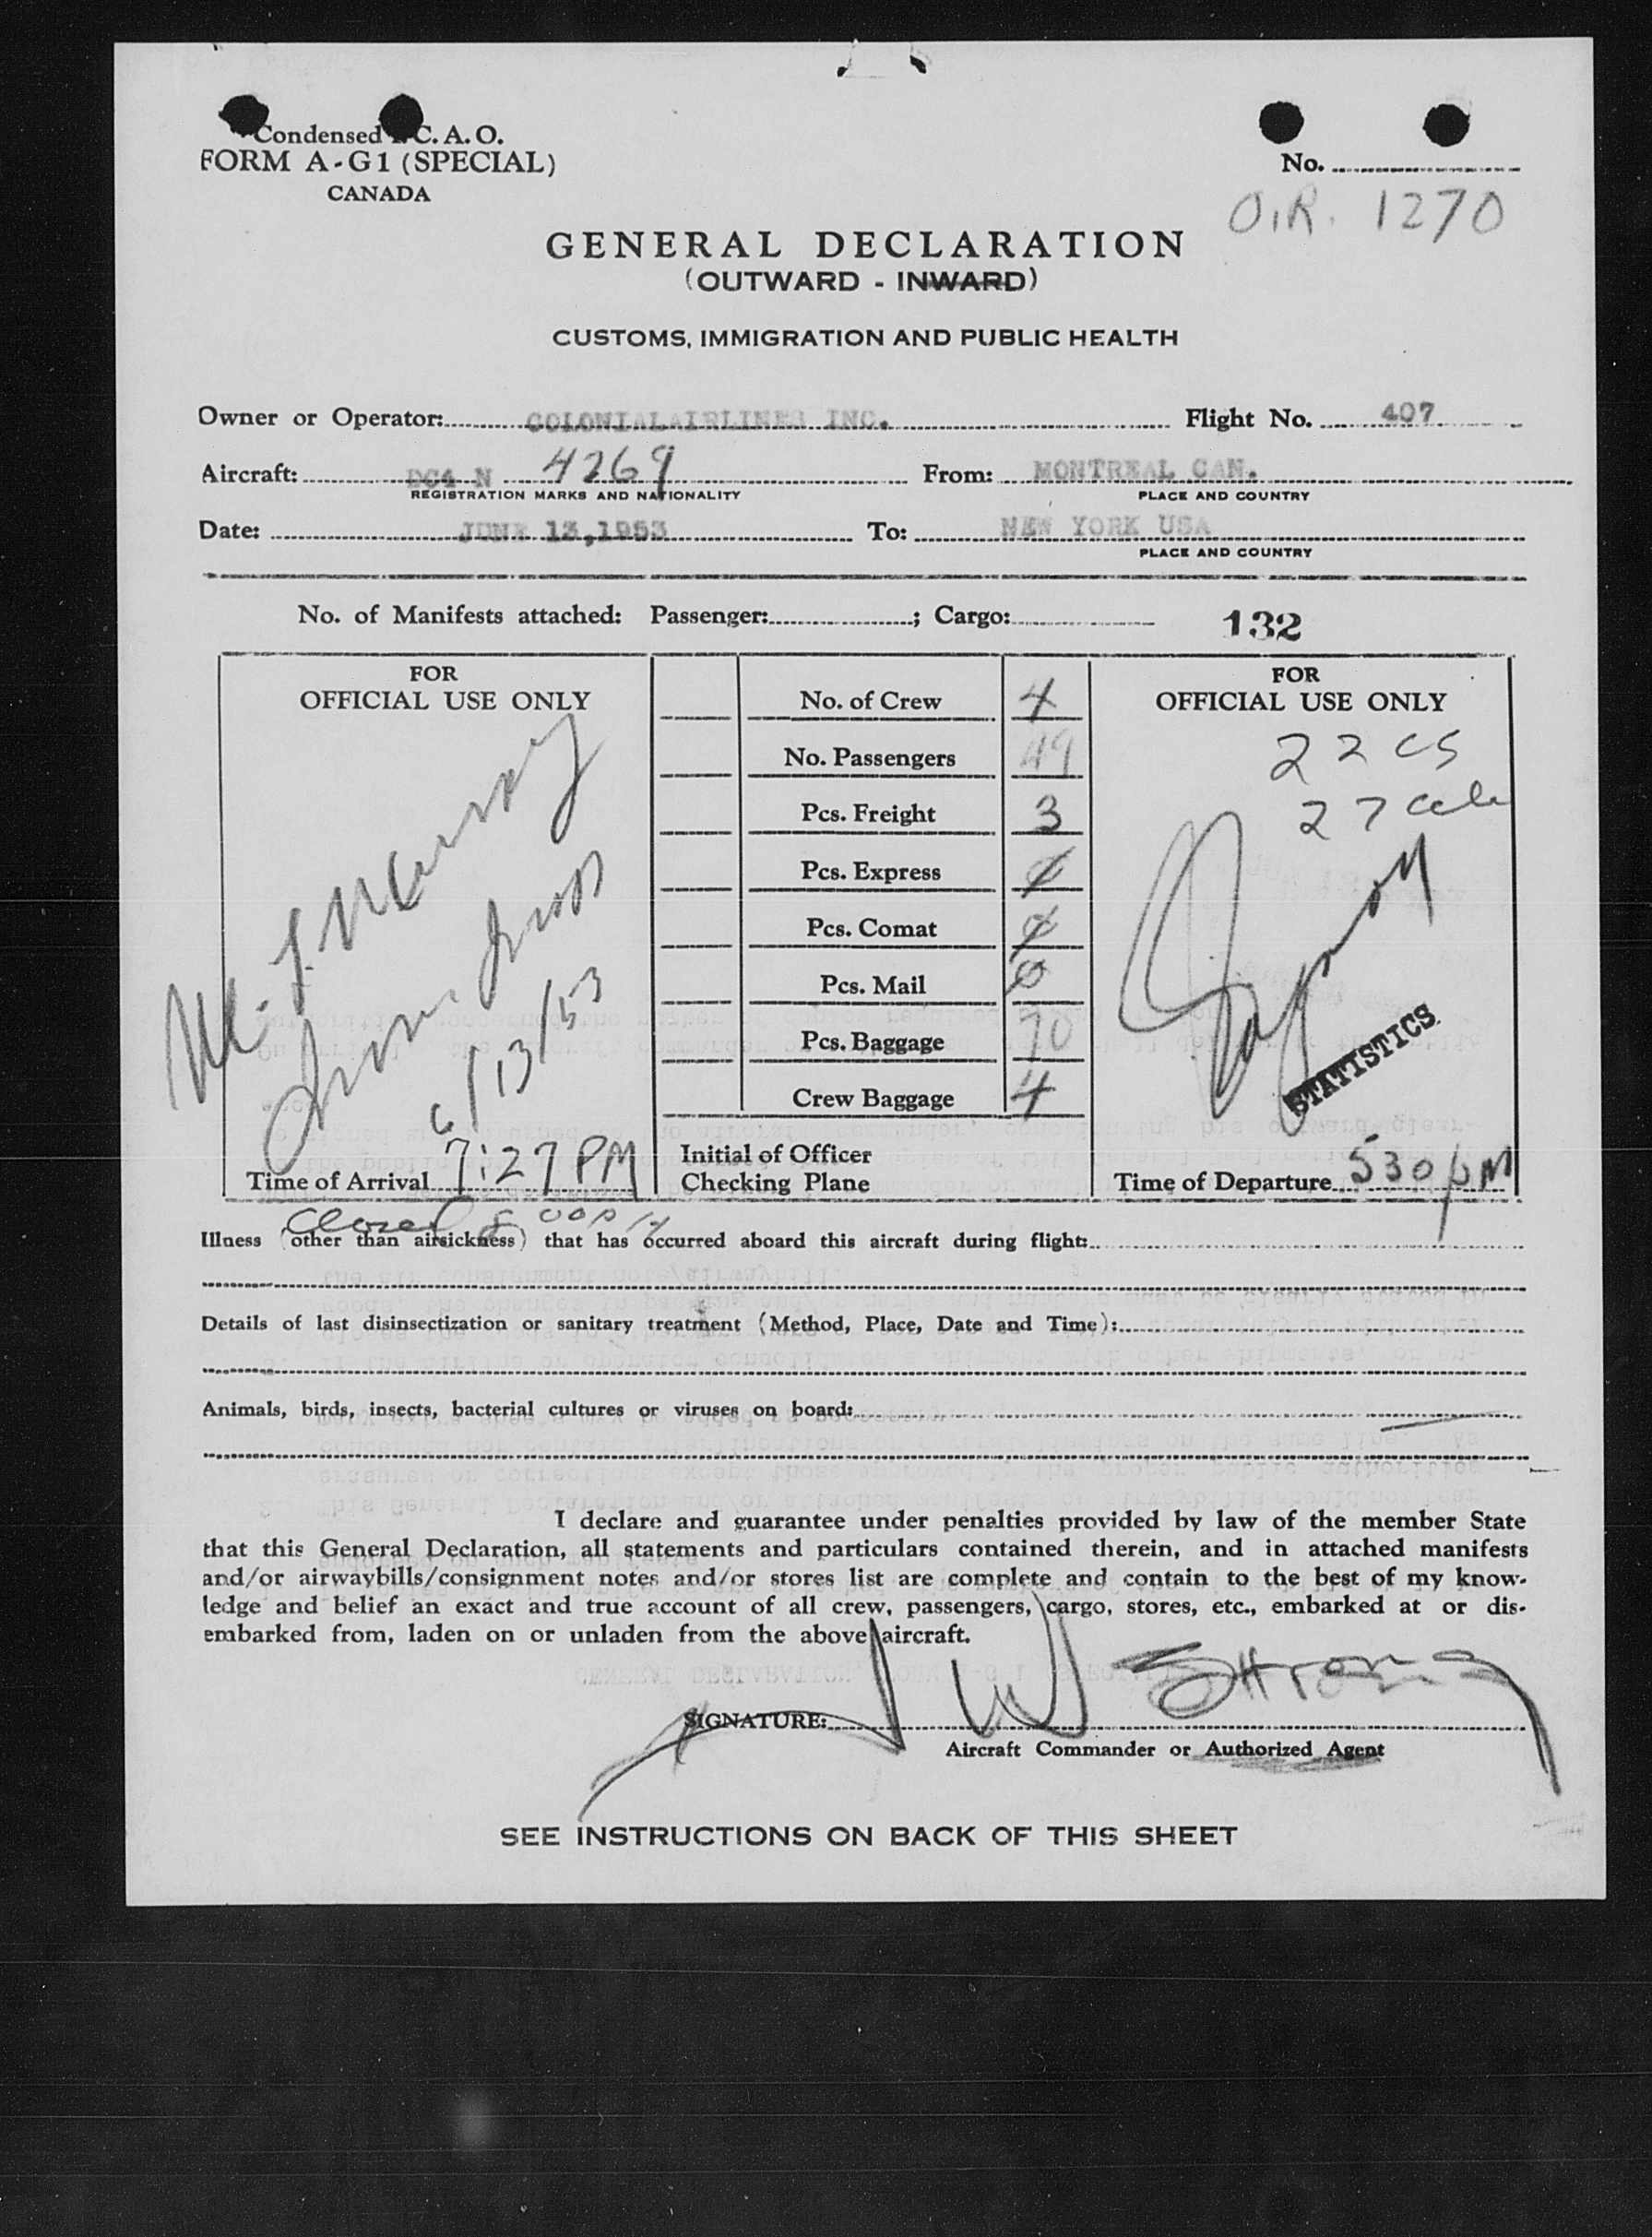 Condensed I.C.A.O.
FORM A-G1 (SPECIAL)
CANADA
No.
O.R. 1270
GENERAL DECLARATION
(OUTWARD - INWARD)
CUSTOMS, IMMIGRATION AND PUBLIC HEALTH
Owner or Operator: COLONIAL AIRLINES INC. Flight No. 407
Aircraft: DC4 N 4269 From: MONTREAL CAN.
REGISTRATION MARKS AND NATIONALITY PLACE AND COUNTRY
Date: JUNE 13,1953 To: NEW YORK USA
PLACE AND COUNTRY
No. of Manifests attached: Passenger: ; Cargo: 132
FOR
OFFICIAL USE ONLY
6/13/53
Time of Arrival 7:27 PM
No. of Crew 4
No. Passengers 49
Pcs. Freight 3
Pcs. Express 0
Pcs. Comat 0
Pcs. Mail 0
Pcs. Baggage 70
Crew Baggage 4
Initial of Officer
Checking Plane
FOR
OFFICIAL USE ONLY
22 CS
27
STATISTICS
Time of Departure 530 PM
Closed
Illness (other than airsickness) that has occurred aboard this aircraft during flight:
Details of last disinsectization or sanitary treatment (Method, Place, Date and Time):
Animals, birds, insects, bacterial cultures or viruses on board:
I declare and guarantee under penalties provided by law of the member State
that this General Declaration, all statements and particulars contained therein, and in attached manifests
and/or airwaybills/consignment notes and/or stores list are complete and contain to the best of my know-
ledge and belief an exact and true account of all crew, passengers, cargo, stores, etc., embarked at or dis-
embarked from, laden on or unladen from the above aircraft.
SIGNATURE: W Strong
Aircraft Commander or Authorized Agent
SEE INSTRUCTIONS ON BACK OF THIS SHEET